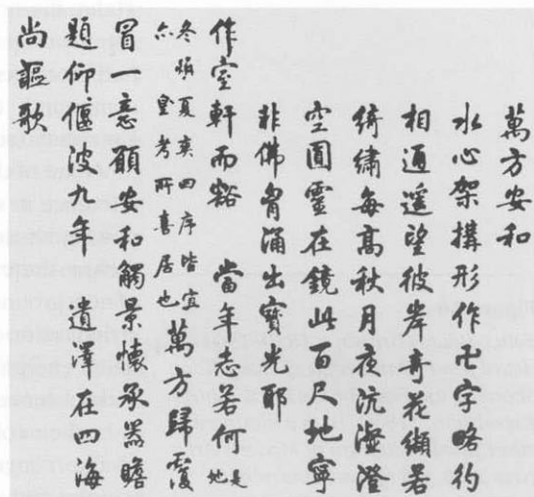 萬方安和
水心架構形作卍字略約
相通遥望彼岸奇花纈若
綺繡每高秋月夜沆瀣澄
空圓靈在鏡此百尺地寧
非佛胷涌出寶光耶
作室軒而豁 當年志若何 是地
冬燠夏爽四序皆宜亦 皇考所喜居也 萬方歸覆
冒一意願安和觸景懷承器瞻
題仰偃波九年 遺澤在四海
尚謳歌